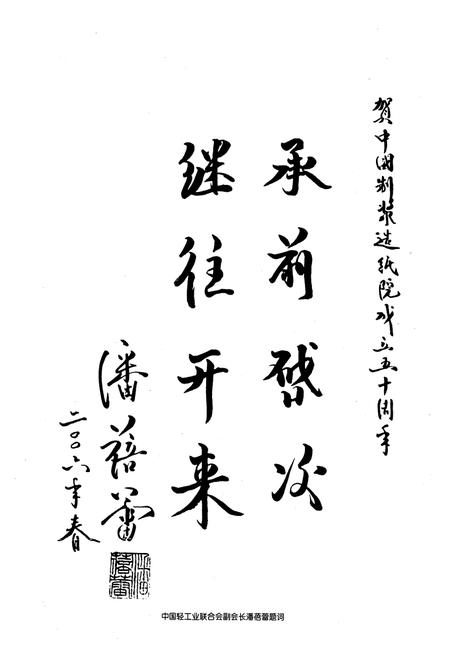 贺中国制浆造纸院成立五十周年
承前啓後
继往开来
潘蓓蕾
二〇〇六年春
中国轻工业联合会副会长潘蓓蕾题词